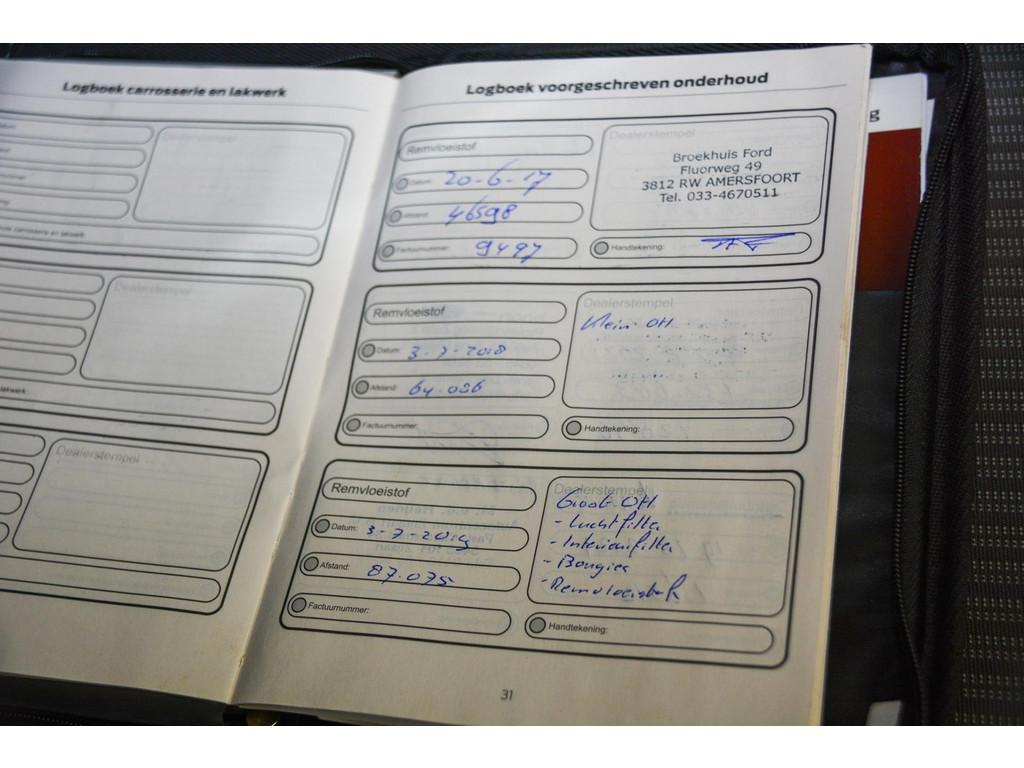 Logboek carrosserie en lakwerk
Dealerstempel
Dealerstempel
lakwerk
Dealerstempel
Logboek voorgeschreven onderhoud
Remvloeistof
Datum: 20-6-17
Afstand: 46598
Factuurnummer: 9497
Dealerstempel
Broekhuis Ford
Fluorweg 49
3812 RW AMERSFOORT
Tel. 033-4670511
Handtekening:
Remvloeistof
Datum: 3-7-2018
Afstand: 64.036
Factuurnummer:
Dealerstempel
Klein OH
Handtekening:
Remvloeistof
Datum: 3-7-2019
Afstand: 87.075
Factuurnummer:
Dealerstempel
Groot OH
- Luchtfilter
- Interieurfilter
- Bougies
- Remvloeistof
Handtekening:
31
g